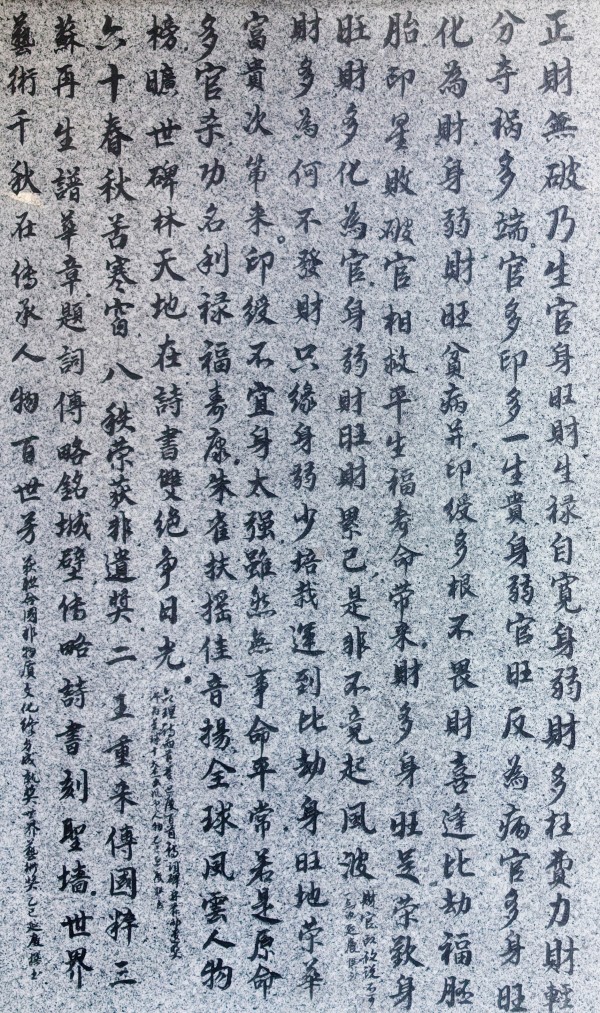 正財無破乃生官身旺財生禄自寬身弱財多枉費力財輕
分奪禍多端。官多印多一生貴身弱官旺反為病官多身旺
化為財身弱財旺貧病并印绶多根不畏財喜逢比劫福胚
胎印星敗破官相救平生福寿命帶来。財多身旺是荣欽身
旺財多化為官身弱財旺財累己是非不竟起風波
財多為何不發財只缘身弱少培栽運到比劫身旺地荣華
富貴次第来。印绶不宜身太强雖然無事命平常若是原命
多官杀功名利禄福寿康。朱雀扶摇佳音揚全球風雲人物
榜曠世碑林天地在詩書雙绝争日光。
六十春秋苦寒窗八秩荣获非遺奬二王重来傳國粹三
蘇再生譜華章題詞傳略銘城壁传略詩書刻聖墙世界
藝術千秋在传承人物百世芳